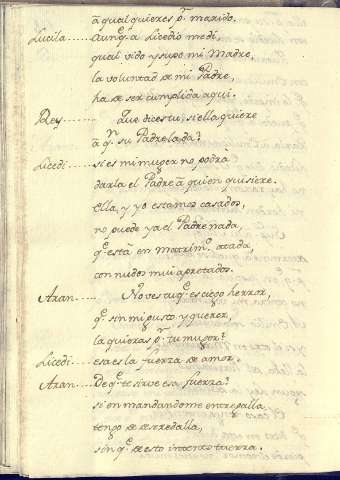 â qual quieres pr. marido.
Lucila..... Aunq. â Licedio medi,
qual vido y supo mi Madre,
la voluntad de mi Padre,
ha de ser cumplida aqui.
Rey..... Que dices tu, si ella quiere
â qn. su Padre la da?
Licedi..... si es mi muger no podrà
darla el Padre â quien quisiere.
Ella, y yo estamos casados,
no puede ya el Padre nada,
q. està en matrimo. atada,
con nudos mui apretados.
Aran..... No ves tu q. es ciego herror,
q. sin mi gusto y querer,
la quieras pr. tu muger?
Licedi..... esa es la fuerza de amor.
Aran..... De q. te sirve esa fuerza?
si en mandandome entregalla
tengo de deredalla,
sin q. de esto intento tuerza.